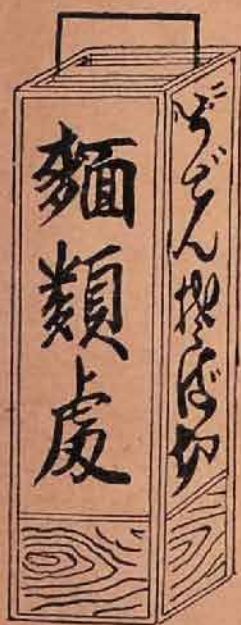 麵類處
うどんそば切